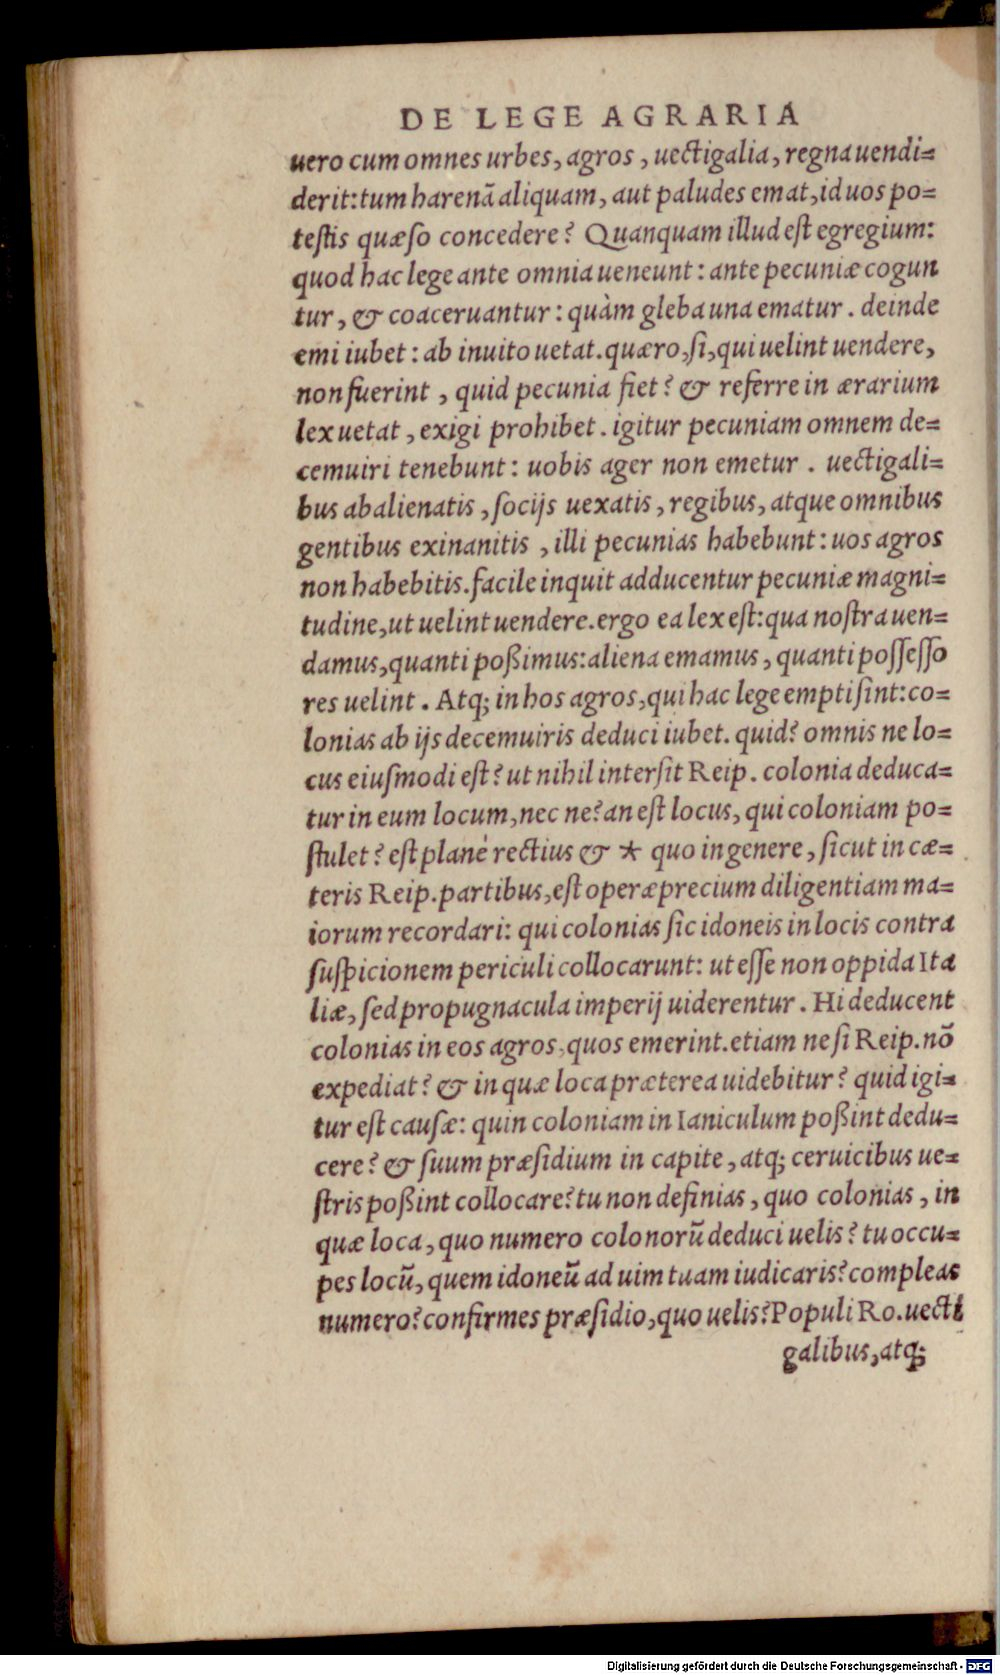 DE LEGE AGRARIA
uero cum omnes urbes, agros, uectigalia, regna uendi=
derit: tum harenã aliquam, aut paludes emat, id uos po=
testis quæso concedere? Quanquam illud est egregium:
quod hac lege ante omnia ueneunt: ante pecuniæ cogun
tur, & coaceruantur: quàm gleba una ematur. deinde
emi iubet: ab inuito uetat. quæro, si, qui uelint uendere,
non fuerint, quid pecunia fiet? & referre in ærarium
lex uetat, exigi prohibet. igitur pecuniam omnem de=
cemuiri tenebunt: uobis ager non emetur. uectigali=
bus abalienatis, socijs uexatis, regibus, atque omnibus
gentibus exinanitis, illi pecunias habebunt: uos agros
non habebitis. facile inquit adducentur pecuniæ magni=
tudine, ut uelint uendere. ergo ea lex est: qua nostra uen=
damus, quanti poßimus: aliena emamus, quanti possesso
res uelint. Atq; in hos agros, qui hac lege empti sint: co=
lonias ab ijs decemuiris deduci iubet. quid? omnis ne lo=
cus eiusmodi est? ut nihil intersit Reip. colonia deduca=
tur in eum locum, nec ne? an est locus, qui coloniam po=
stulet? est planè rectius & * quo in genere, sicut in cæ=
teris Reip. partibus, est operæprecium diligentiam ma=
iorum recordari: qui colonias sic idoneis in locis contra
suspicionem periculi collocarunt: ut esse non oppida Ita
liæ, sed propugnacula imperij uiderentur. Hi deducent
colonias in eos agros, quos emerint. etiam ne si Reip. nõ
expediat? & in quæ loca præterea uidebitur? quid igi=
tur est causæ: quin coloniam in Ianiculum poßint dedu=
cere? & suum præsidium in capite, atq; ceruicibus ue=
stris poßint collocare? tu non definias, quo colonias, in
quæ loca, quo numero colonorũ deduci uelis? tu occu=
pes locũ, quem idoneũ ad uim tuam iudicaris? compleas
numero? confirmes præsidio, quo uelis? Populi Ro. uecti
galibus, atq;
Digitalisierung gefördert durch die Deutsche Forschungsgemeinschaft - DFG